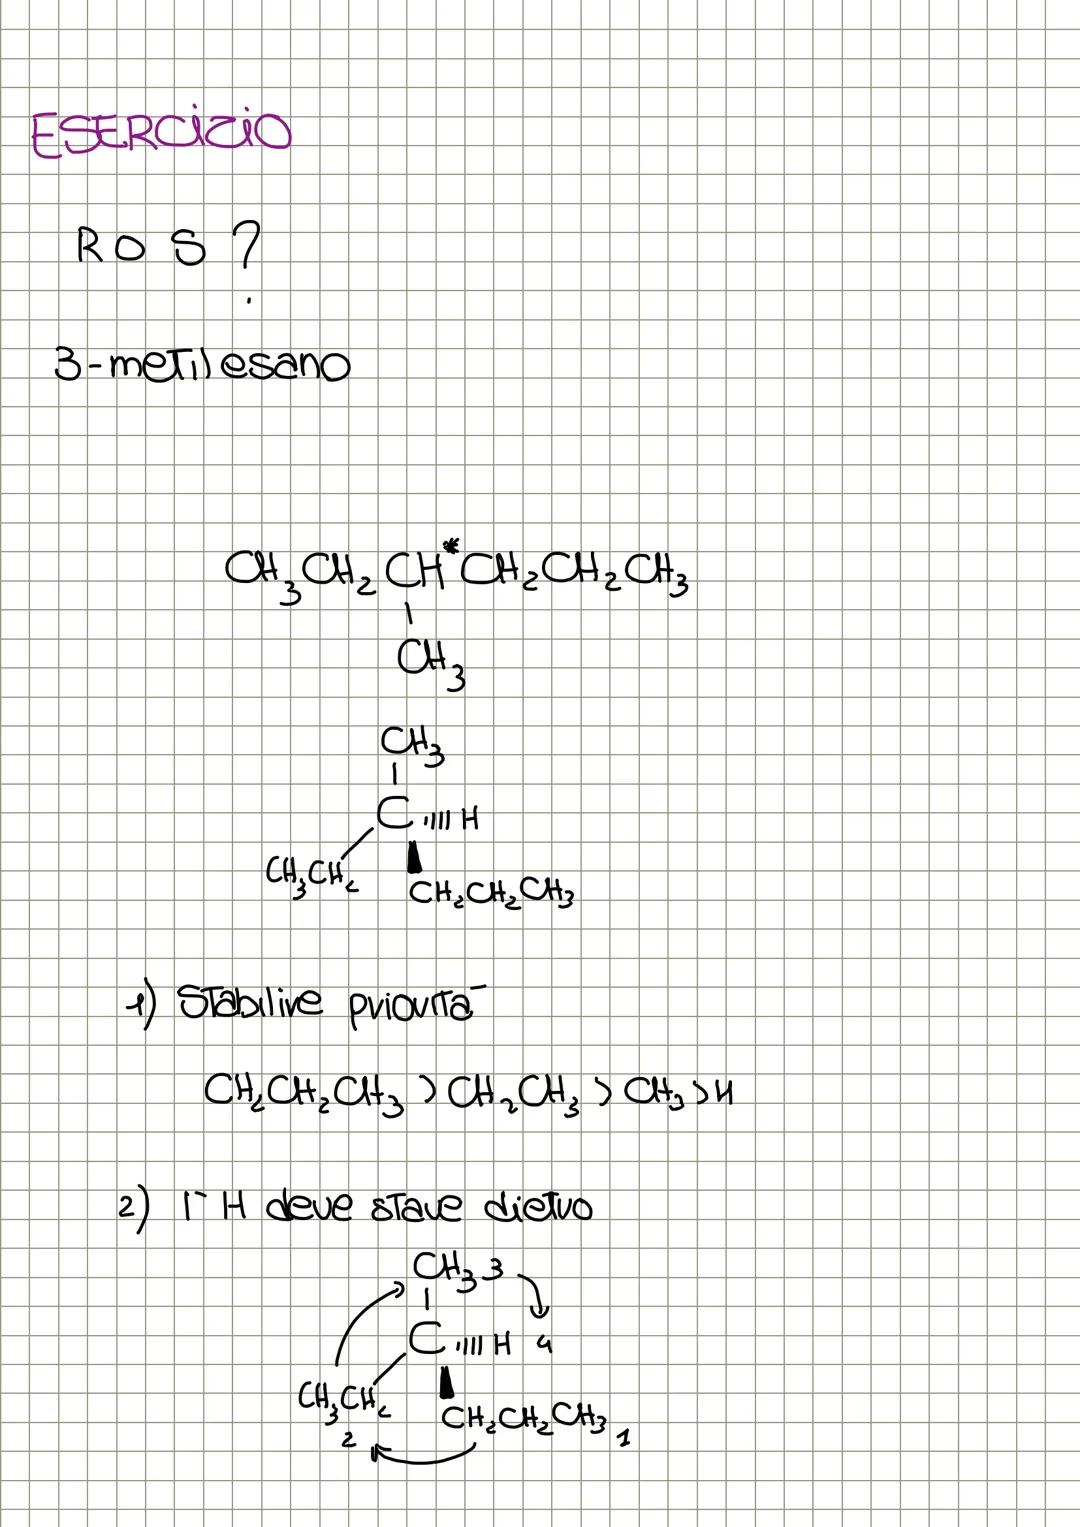 ESERCIZIO
R O S ?
3-metilesano
CH₃CH₂CH*CH₂CH₂CH₃
CH₃
CH₃
C H
CH₃CH₂
CH₂CH₂CH₃
1) Stabilire priorità
CH₂CH₂CH₃ > CH₂CH₃ > CH₃ > H
2) l'H deve stare dietro
CH₃ 3
C H 4
CH₃CH₂
CH₂CH₂CH₃ 1
2